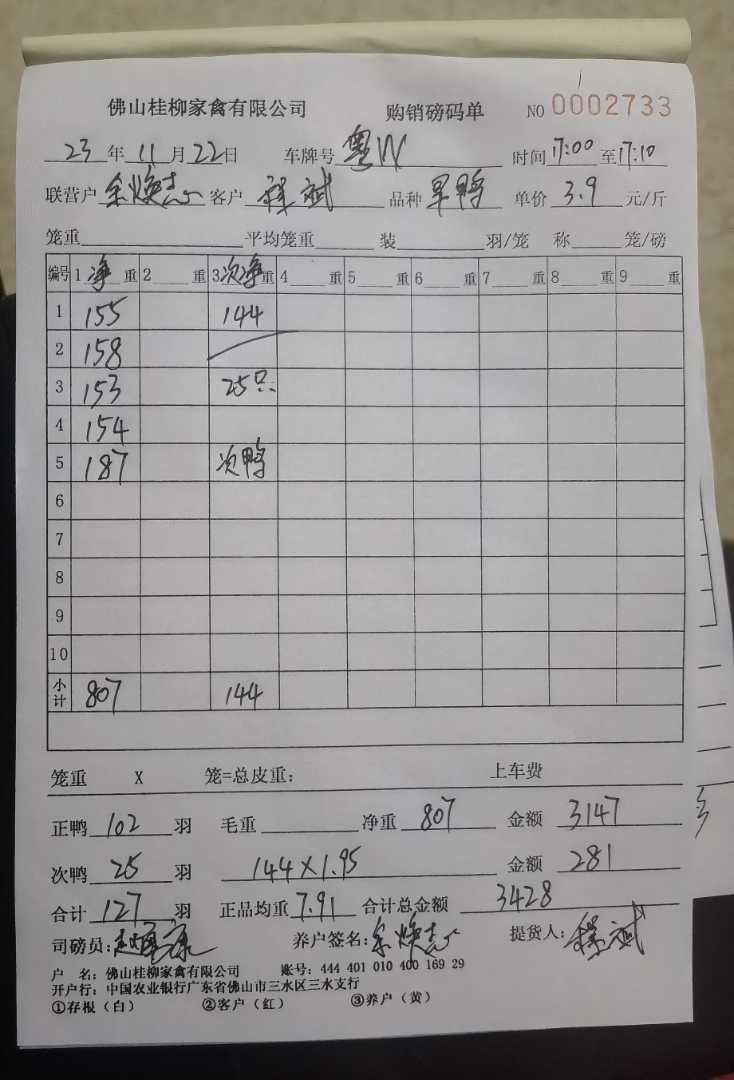 佛山桂柳家禽有限公司 购销磅码单 NO 0002733
23年11月22日 车牌号 粤W 时间 17:00 至 17:10
联营户 余焕志 客户 程斌 品种 旱鸭 单价 3.9 元/斤
笼重 平均笼重 装 羽/笼 称 笼/磅
编号 1 净 重 2 重 3 次净 重 4 重 5 重 6 重 7 重 8 重 9 重
1 155 144
2 158
3 153 25只
4 154
5 187 次鸭
6
7
8
9
10
小计 807 144
笼重 X 笼=总皮重: 上车费
正鸭 102 羽 毛重 净重 807 金额 3147
次鸭 25 羽 144×1.95 金额 281
合计 127 羽 正品均重 7.91 合计总金额 3428
司磅员: 养户签名: 余焕志 提货人: 程斌
户 名: 佛山桂柳家禽有限公司 账号: 444 401 010 400 169 29
开户行: 中国农业银行广东省佛山市三水区三水支行
①存根（白） ②客户（红） ③养户（黄）